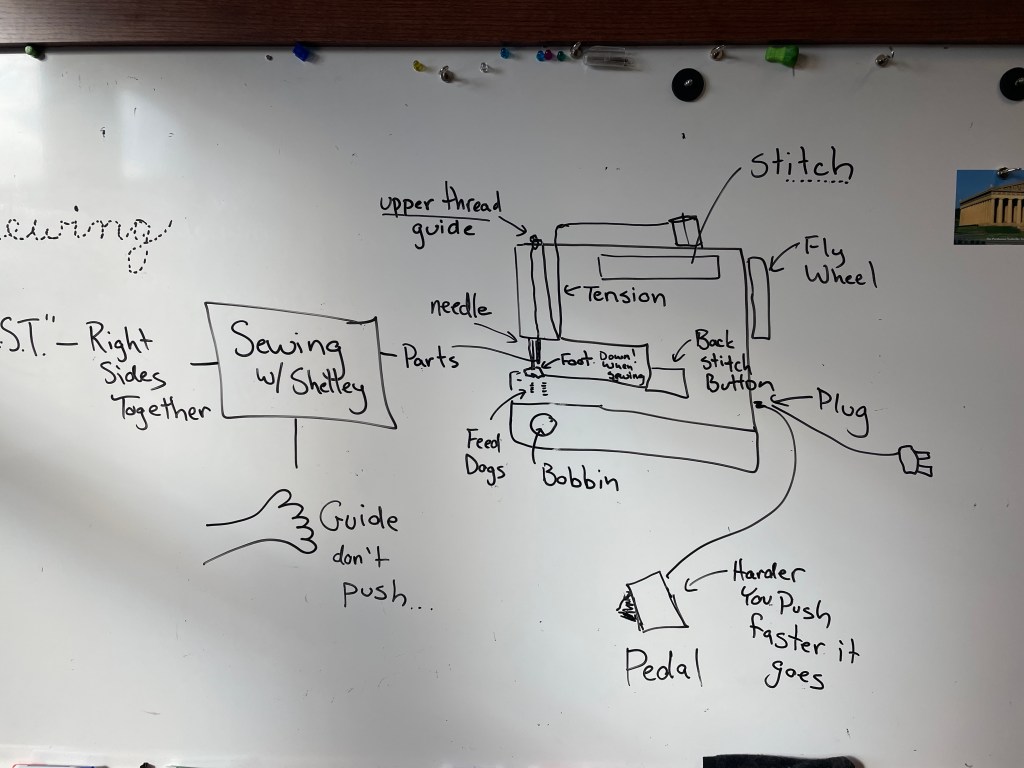 ewing
S.T." – Right
Sides
Together
Sewing
w/ Shelley
Guide
don't
push...
Parts
upper thread
guide
needle
Stitch
Fly
Wheel
Tension
Foot Down!
When
Sewing
Back
Stitch
Button
Plug
Feed
Dogs
Bobbin
Pedal
Harder
You Push
faster it
goes